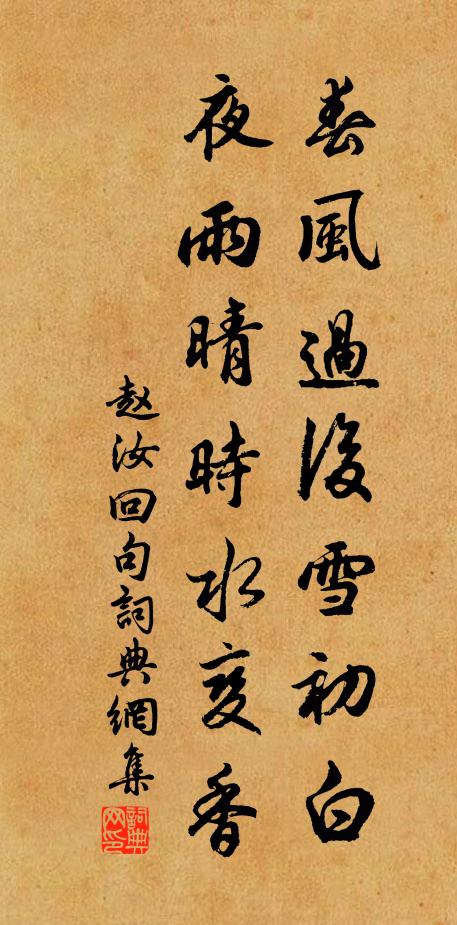 春風過後雪初白
夜雨晴時水变香
赵汝回句詞典網集
詞典网印